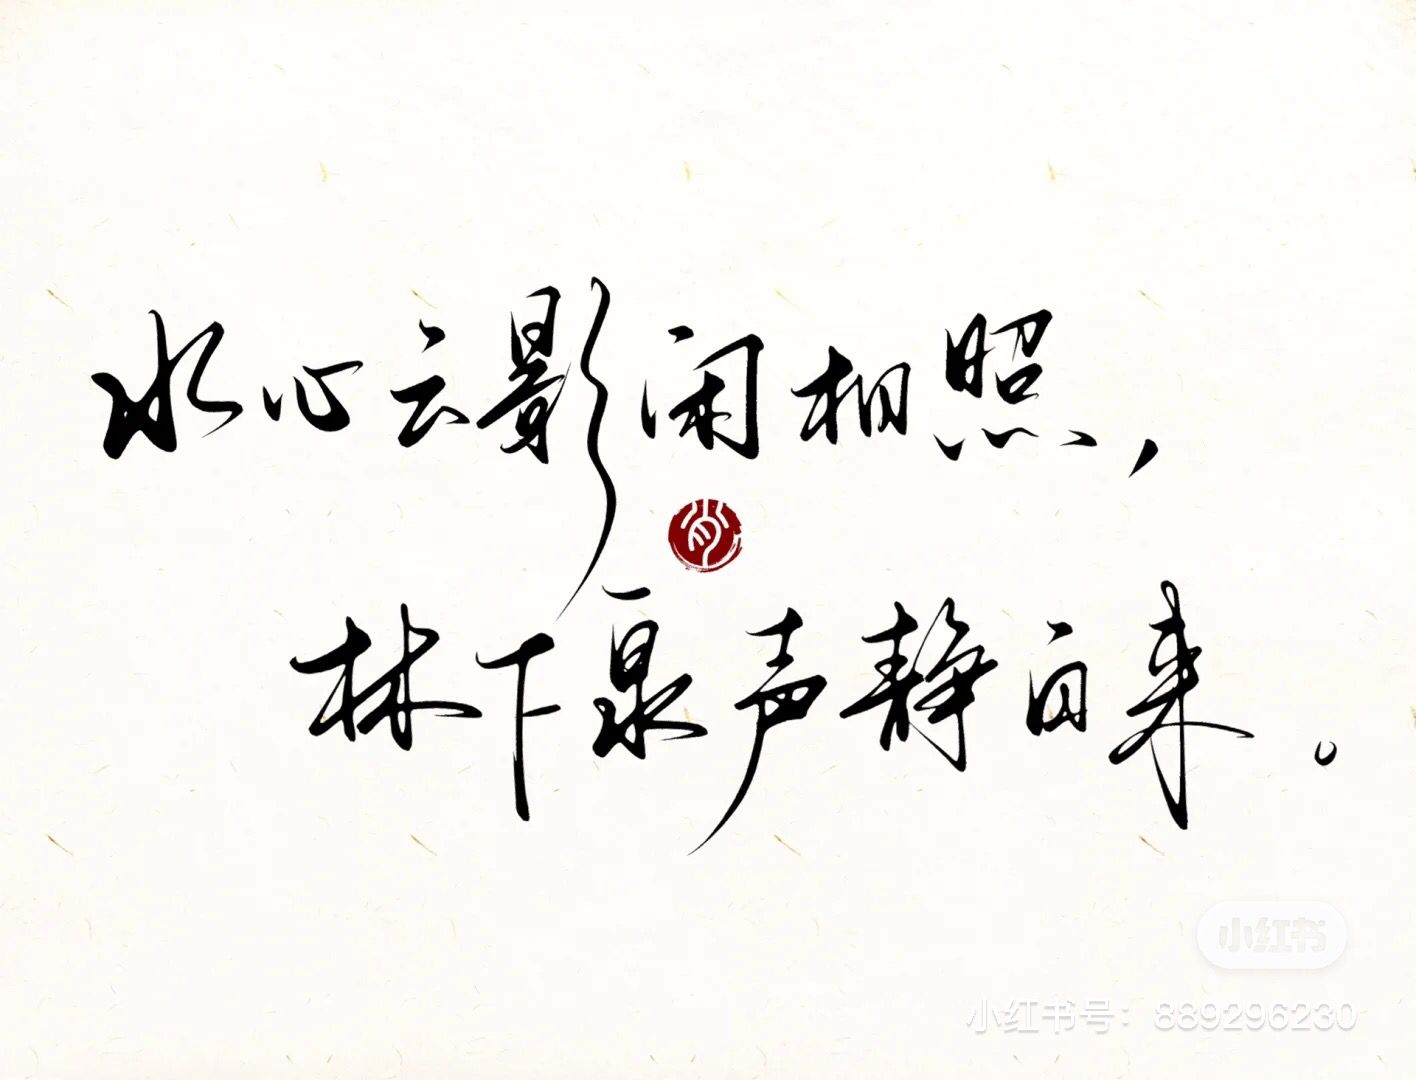 水心云影闲相照，
林下泉声静自来。
小红书
小红书号：889296230